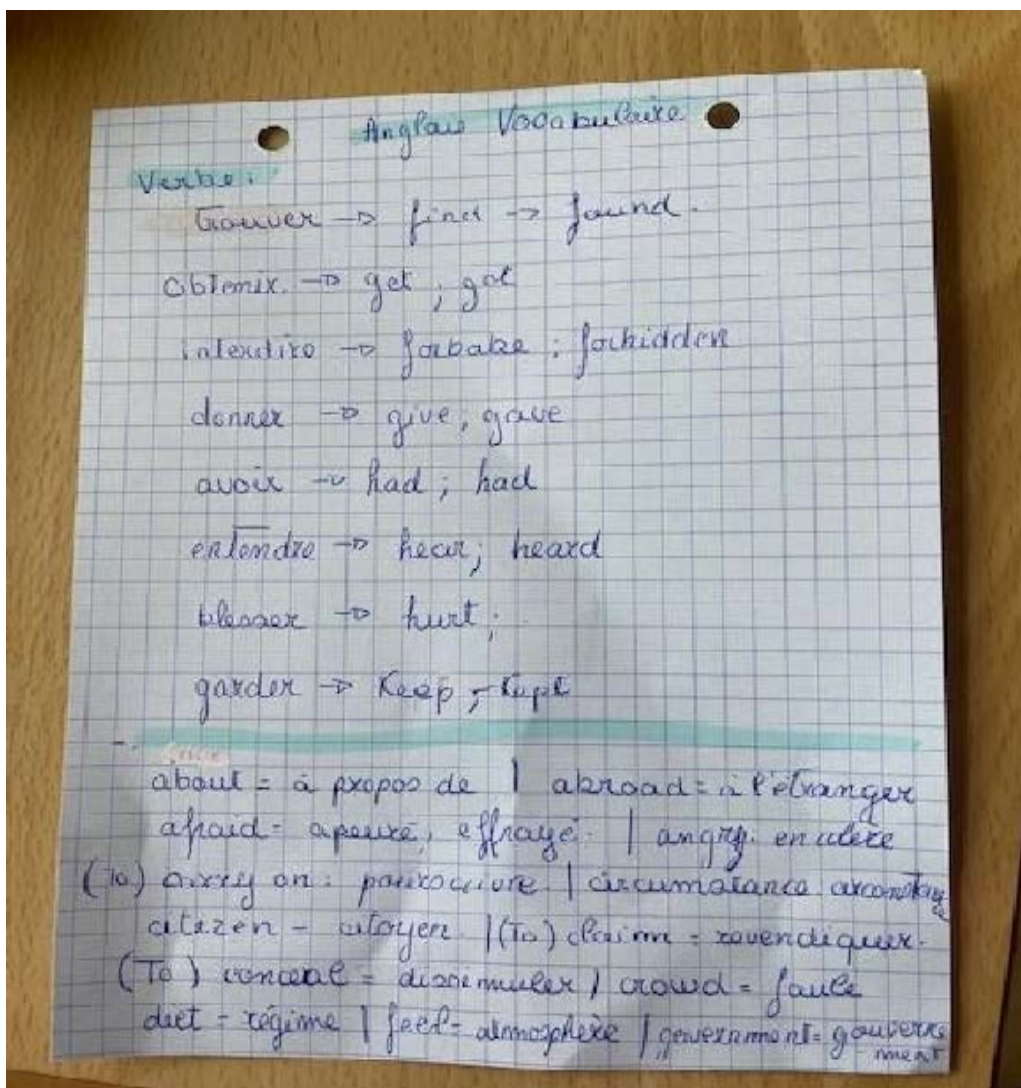 Anglais Vocabulaire
Verbe:
trouver → find → found.
obtenir. → get ; got
interdire → forbake ; forbidden
donner → give, gave
avoir → had ; had
entendre → hear; heard
blesser → hurt;
garder → Keep, - Kept
about = à propos de | abroad = à l'étranger
afraid = apeuré, effrayé. | angry: en colère
(To) carry on: poursuivre | circumstance circonstance
citizen - citoyen | (To) claim = revendiquer.
(To) conceal = dissimuler | crowd = foule
diet = régime | feel = atmosphère | government = gouverne
ment